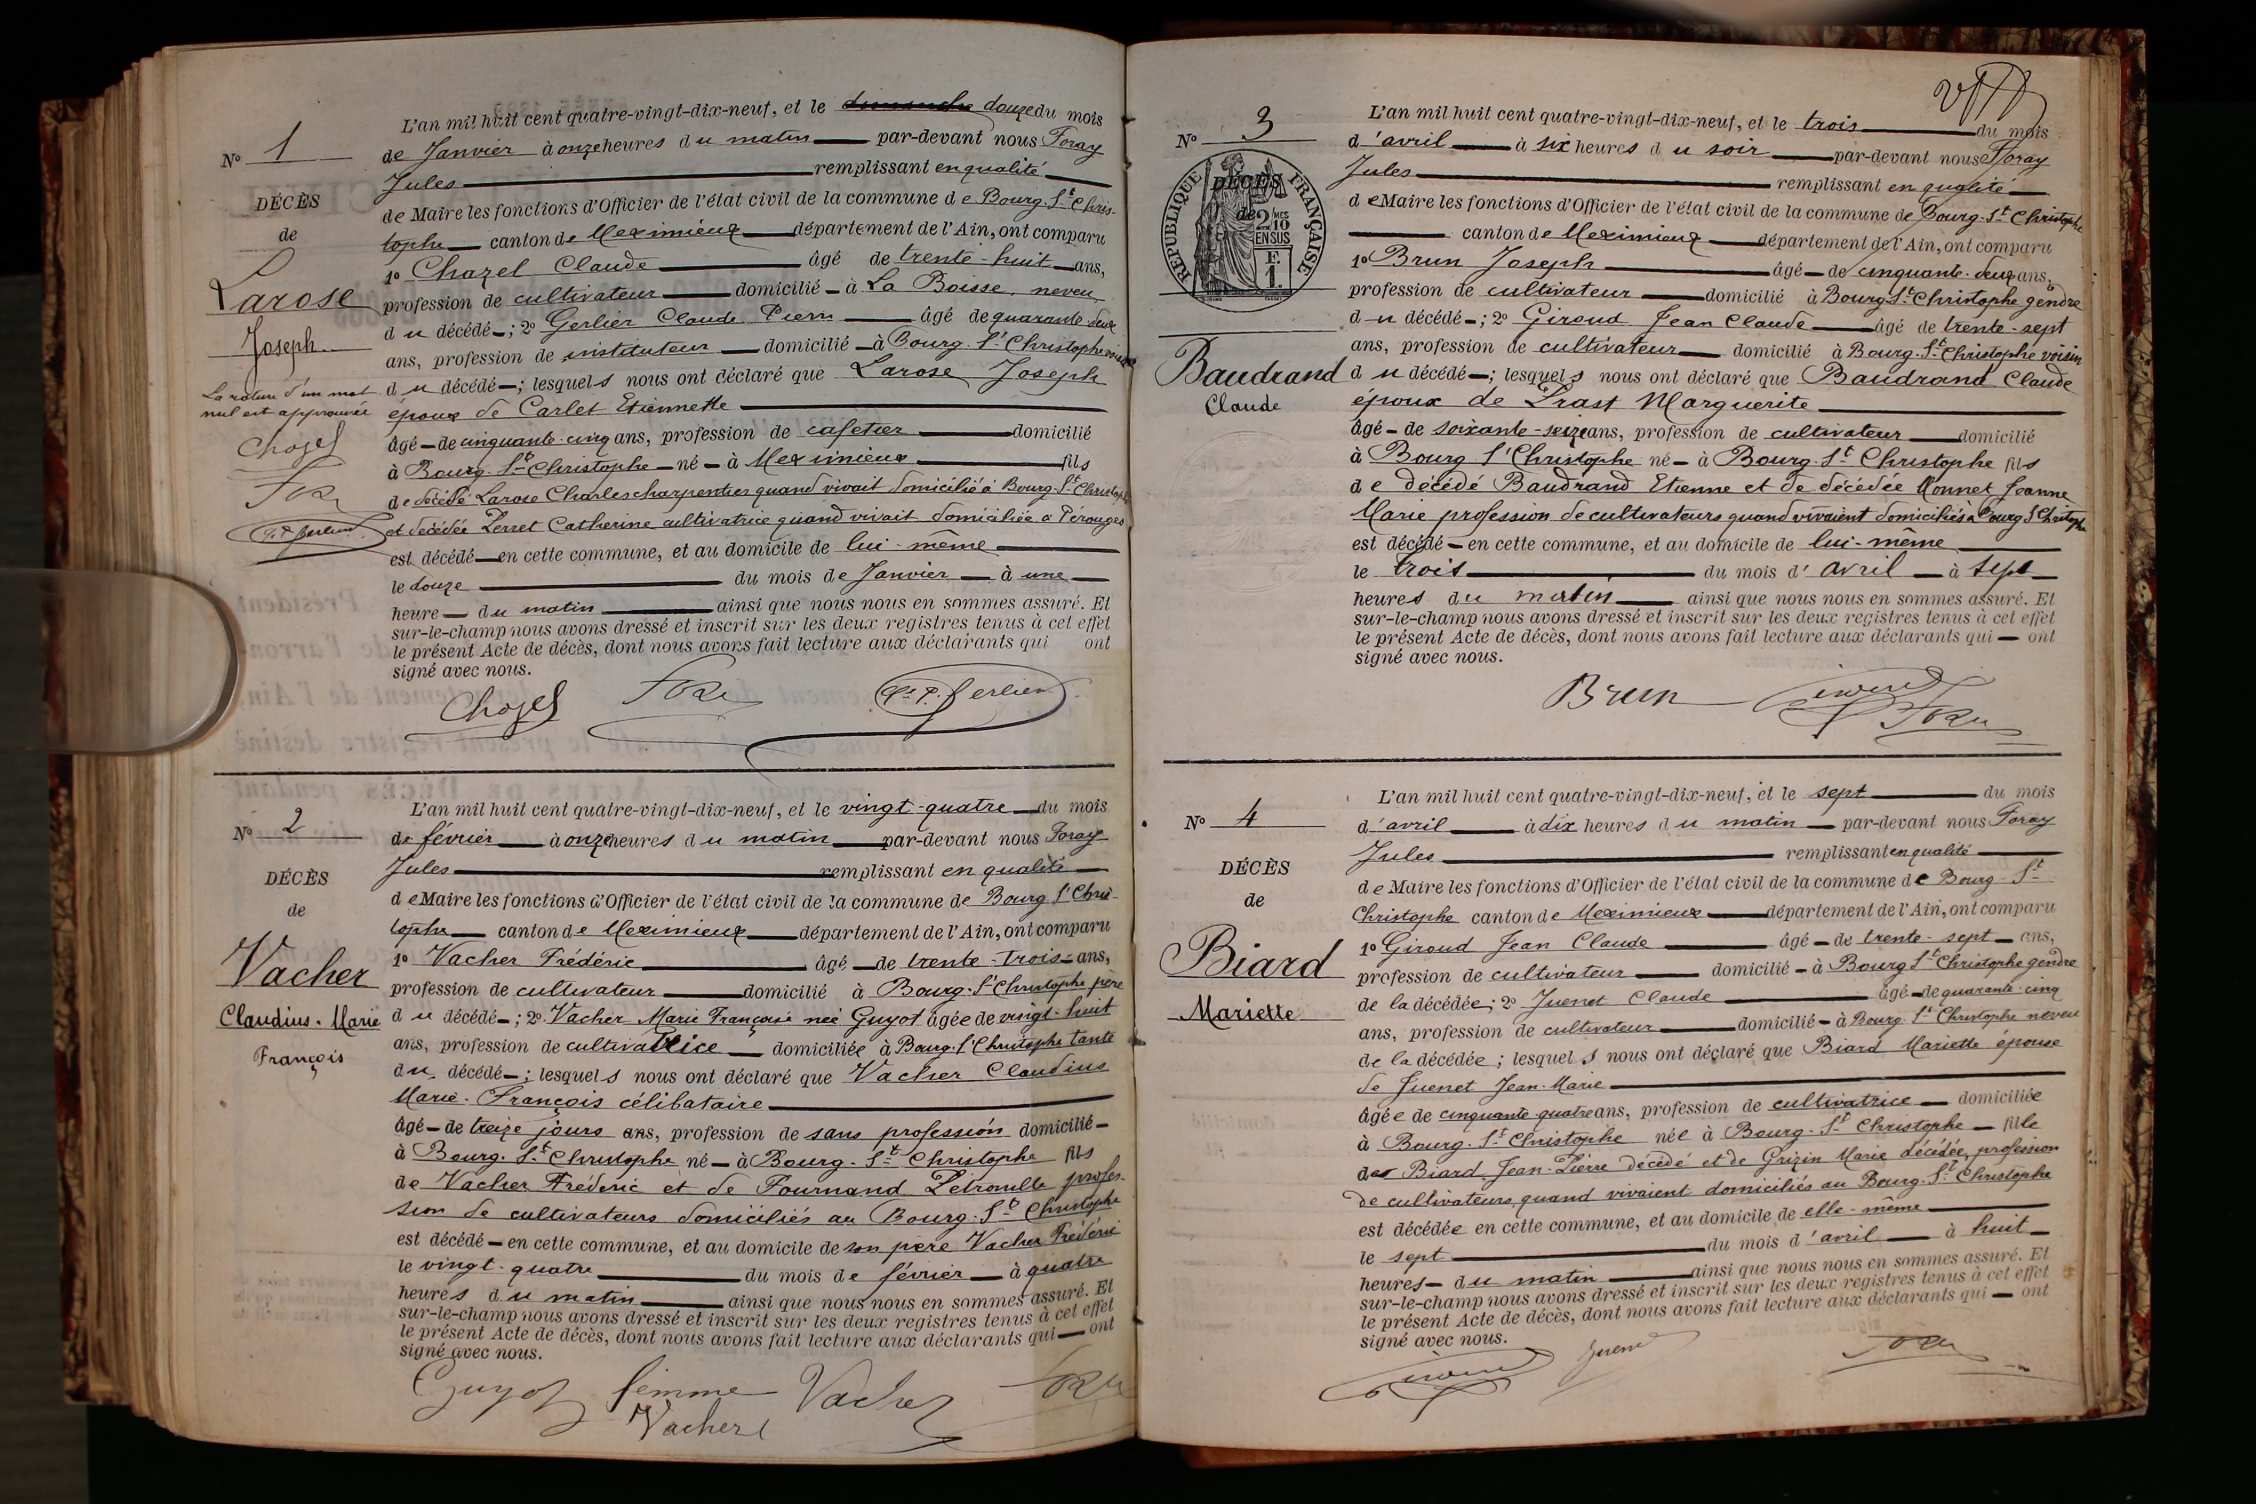 N° 1
DÉCÈS
de
Larose
Joseph
La rature d'un mot
nul est approuvée
Chazel
L'an mil huit cent quatre-vingt-dix-neuf, et le dimanche douze du mois
de Janvier à onze heures du matin par-devant nous Foray
Jules remplissant en qualité
de Maire les fonctions d'Officier de l'état civil de la commune de Bourg-St Chris-
tophe canton de Meximieux département de l'Ain, ont comparu
1° Chazel Claude âgé de trente-huit ans,
profession de cultivateur domicilié à La Boisse, neveu
du décédé ; 2° Gerlier Claude Pierre âgé de quarante deux
ans, profession de instituteur domicilié à Bourg-St Christophe voisin
du décédé ; lesquels nous ont déclaré que Larose Joseph
époux de Carlet Etiennette
âgé de cinquante-cinq ans, profession de cafetier domicilié
à Bourg-St Christophe né à Meximieux fils
de décédé Larose Charles charpentier quand vivait domicilié à Bourg-St Christophe
et décédée Perret Catherine cultivatrice quand vivait domiciliée à Pérouges
est décédé en cette commune, et au domicile de lui-même
le douze du mois de Janvier à une
heure du matin ainsi que nous nous en sommes assuré. Et
sur-le-champ nous avons dressé et inscrit sur les deux registres tenus à cet effet
le présent Acte de décès, dont nous avons fait lecture aux déclarants qui ont
signé avec nous.
Chazel Foray Cl. P. Gerlier
N° 2
DÉCÈS
de
Vacher
Claudius-Marie
François
L'an mil huit cent quatre-vingt-dix-neuf, et le vingt-quatre du mois
de février à onze heures du matin par-devant nous Foray
Jules remplissant en qualité
de Maire les fonctions d'Officier de l'état civil de la commune de Bourg St Chris-
tophe canton de Meximieux département de l'Ain, ont comparu
1° Vacher Frédéric âgé de trente-trois ans,
profession de cultivateur domicilié à Bourg-St Christophe père
du décédé ; 2° Vacher Marie Françoise née Guyot âgée de vingt-huit
ans, profession de cultivatrice domiciliée à Bourg-St Christophe tante
du décédé ; lesquels nous ont déclaré que Vacher Claudius
Marie-François célibataire
âgé de treize jours ans, profession de sans profession domicilié
à Bourg-St Christophe né à Bourg-St Christophe fils
de Vacher Frédéric et de Fournand Pétronille profes-
sion de cultivateurs domiciliés au Bourg-St Christophe
est décédé en cette commune, et au domicile de son père Vacher Frédéric
le vingt-quatre du mois de février à quatre
heures du matin ainsi que nous nous en sommes assuré. Et
sur-le-champ nous avons dressé et inscrit sur les deux registres tenus à cet effet
le présent Acte de décès, dont nous avons fait lecture aux déclarants qui ont
signé avec nous.
Guyot femme Vacher Foray
Vacher
N° 3
RÉPUBLIQUE FRANÇAISE
2/10 MES
EN SUS
F.
1.
DÉCÈS
de
Baudrand
Claude
L'an mil huit cent quatre-vingt-dix-neuf, et le trois du mois
d'avril à six heures du soir par-devant nous Foray
Jules remplissant en qualité
de Maire les fonctions d'Officier de l'état civil de la commune de Bourg-St Christophe
canton de Meximieux département de l'Ain, ont comparu
1° Brun Joseph âgé de cinquante-deux ans,
profession de cultivateur domicilié à Bourg-St Christophe gendre
du décédé ; 2° Giroud Jean Claude âgé de trente-sept
ans, profession de cultivateur domicilié à Bourg-St Christophe voisin
du décédé ; lesquels nous ont déclaré que Baudrand Claude
époux de Prast Marguerite
âgé de soixante-seize ans, profession de cultivateur domicilié
à Bourg St Christophe né à Bourg-St Christophe fils
de décédé Baudrand Etienne et de décédée Monnet Jeanne
Marie profession de cultivateurs quand vivaient domiciliés à Bourg St Christophe
est décédé en cette commune, et au domicile de lui-même
le trois du mois d'avril à sept
heures du matin ainsi que nous nous en sommes assuré. Et
sur-le-champ nous avons dressé et inscrit sur les deux registres tenus à cet effet
le présent Acte de décès, dont nous avons fait lecture aux déclarants qui ont
signé avec nous.
Brun Giroud
Foray
N° 4
DÉCÈS
de
Biard
Mariette
L'an mil huit cent quatre-vingt-dix-neuf, et le sept du mois
d'avril à dix heures du matin par-devant nous Foray
Jules remplissant en qualité
de Maire les fonctions d'Officier de l'état civil de la commune de Bourg-St
Christophe canton de Meximieux département de l'Ain, ont comparu
1° Giroud Jean Claude âgé de trente-sept ans,
profession de cultivateur domicilié à Bourg St Christophe gendre
de la décédée ; 2° Juenet Claude âgé de quarante-cinq
ans, profession de cultivateur domicilié à Bourg-St Christophe neveu
de la décédée ; lesquels nous ont déclaré que Biard Mariette épouse
de Juenet Jean-Marie
âgée de cinquante quatre ans, profession de cultivatrice domiciliée
à Bourg-St Christophe née à Bourg-St Christophe fille
des Biard Jean-Pierre décédé et de Grizin Marie décédée, profession
de cultivateurs, quand vivaient domiciliés au Bourg-St Christophe
est décédée en cette commune, et au domicile de elle-même
le sept du mois d'avril à huit
heures du matin ainsi que nous nous en sommes assuré. Et
sur-le-champ nous avons dressé et inscrit sur les deux registres tenus à cet effet
le présent Acte de décès, dont nous avons fait lecture aux déclarants qui ont
signé avec nous.
Giroud Juenet Foray